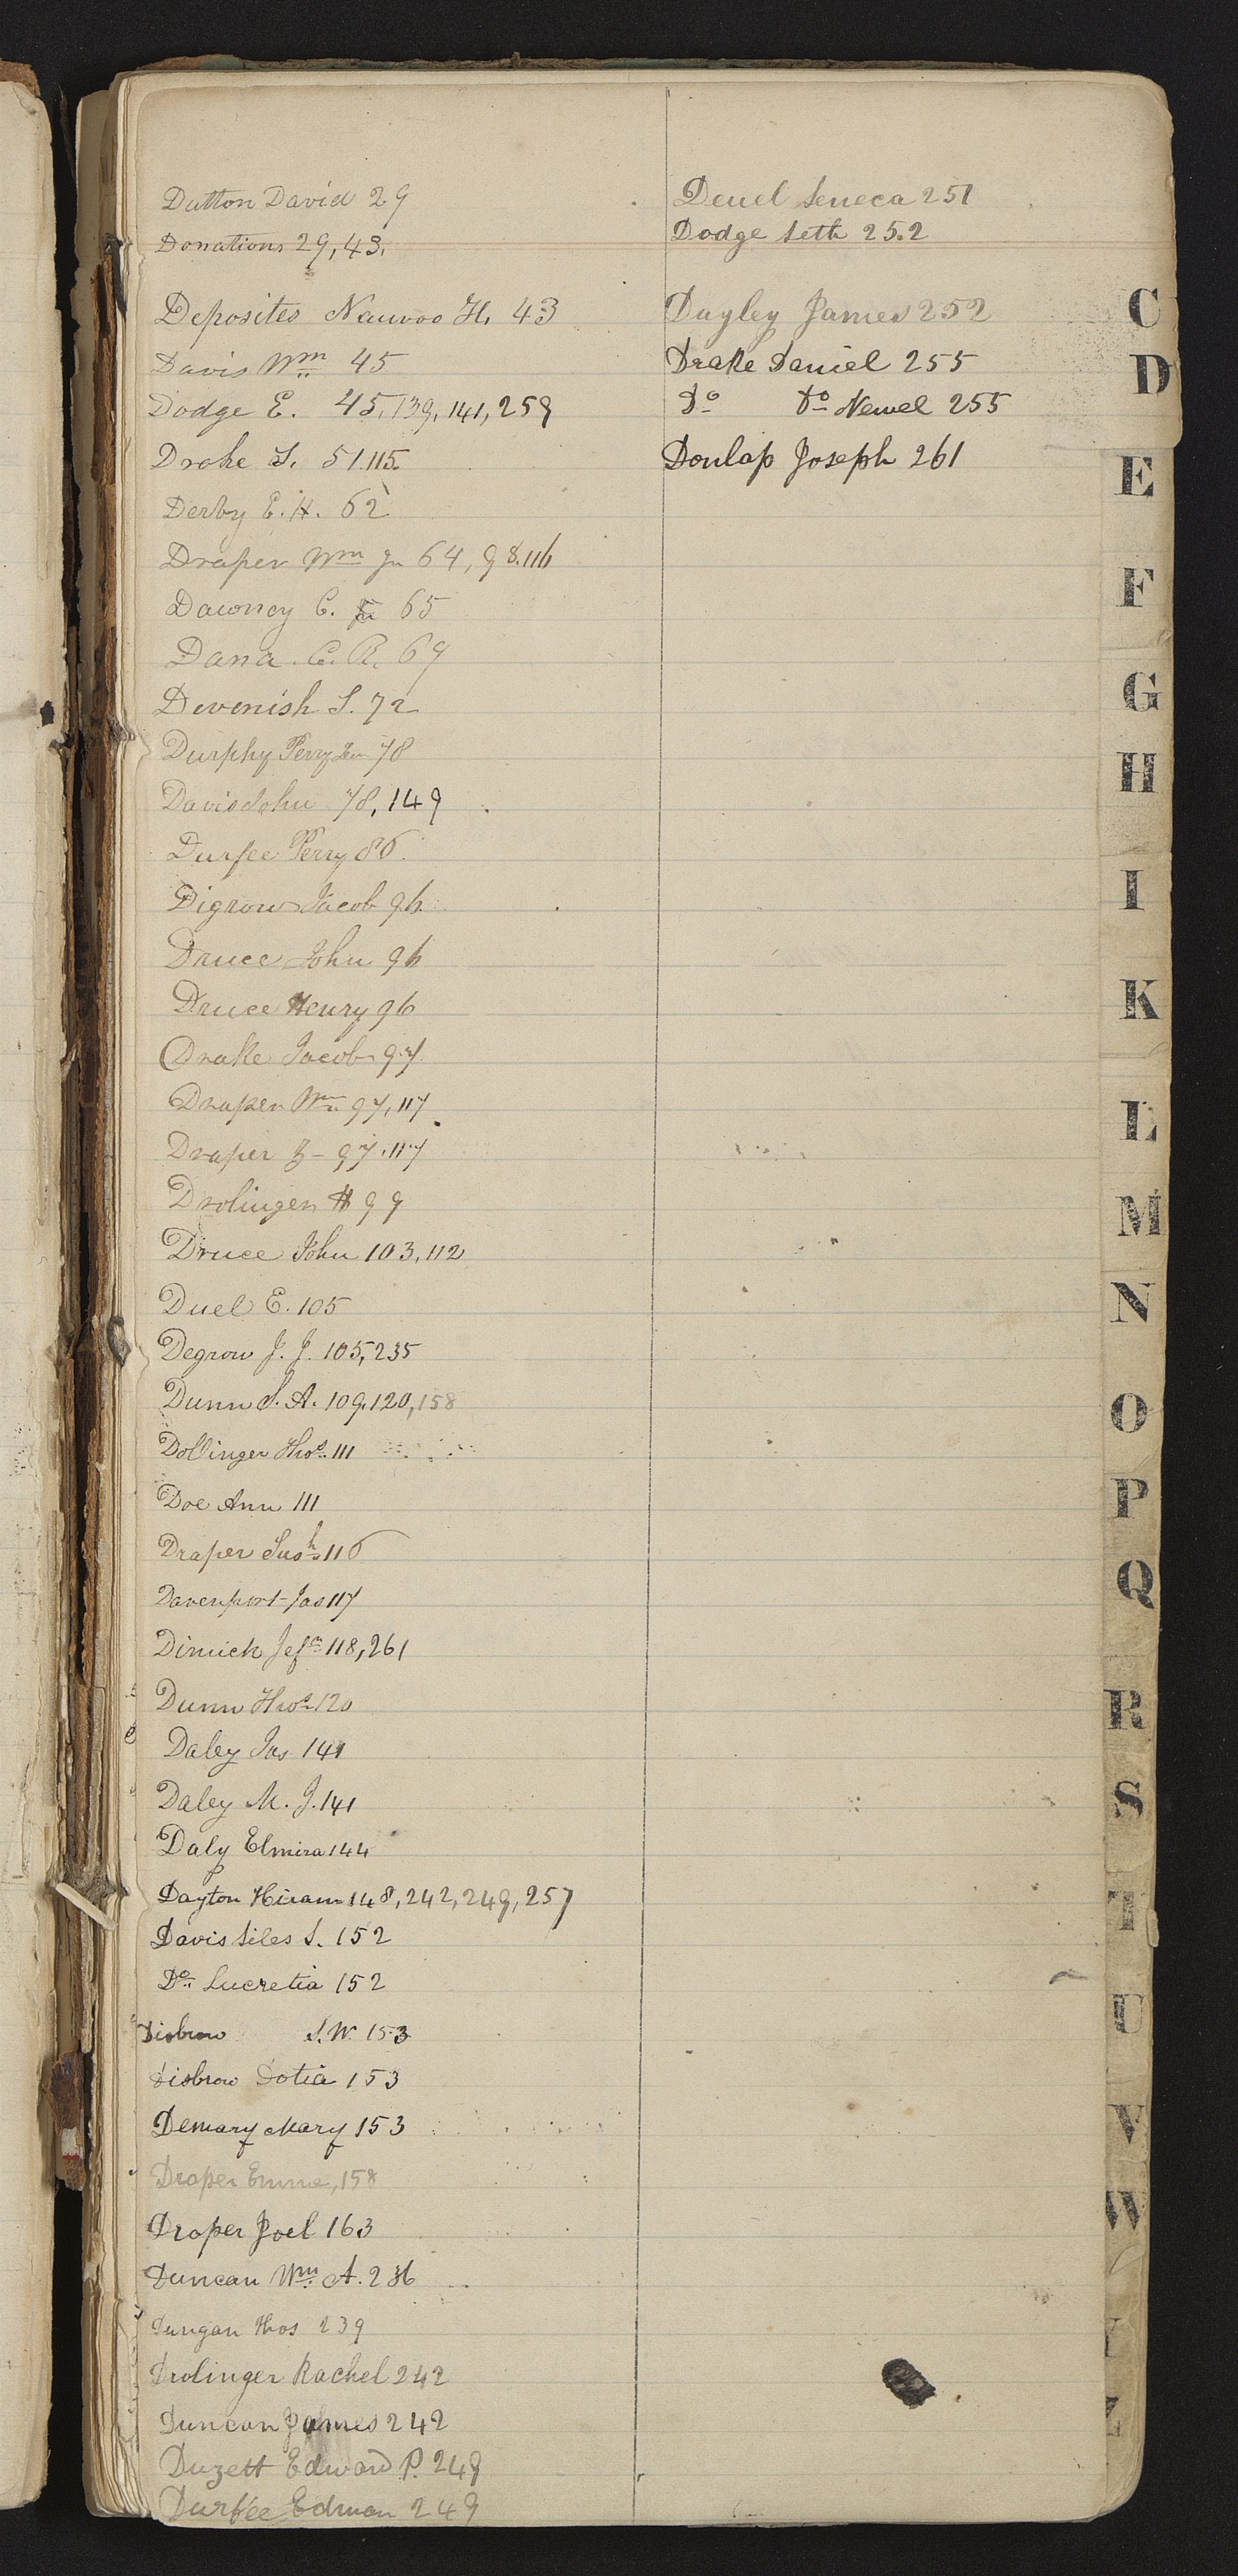 Dutton David 29
Donations 29, 43.
Deposites Nauvoo H. 43
Davis Wm 45
Dodge E. 45, 139, 141, 259
Drake S. 51.115.
Derby E. H. 62
Draper Wm Jn 64, 98.116
Dawney C. 65
Dana C. R. 69
Devenish S. 72
Durphy Perry 78
Davis John 78, 149
Durfee Perry 86
Digrow Jacob 96.
Druce John 96
Druce Henry 96
Drake Jacob 97.
Draper Wm 97, 117
Draper Z- 97.117
Drolinger H 99
Druce John 103, 112
Duel E. 105
Degrow J. J. 105, 235
Dunn S. A. 109.120, 158
Dollinger Thos 111
Doe Ann 111
Draper Sush 116
Davenport Jas 117
Dimick Jefn 118, 261
Dunn Thos 120
Daley Jas 141
Daley M. J. 141
Daly Elmira 144
Dayton Hiram 148, 242, 249, 257
Davis Siles S. 152
Do Lucretia 152
Disbrow S. W. 153
Disbrow Dotia 153
Demary Mary 153
Draper Emme, 158
Draper Joel 163
Duncan Wm A. 236
Dungan Thos 239
Drolinger Rachel 242
Duncan James 242
Duzett Edward P. 249
Durfee Edman 249
Deuel Seneca 251
Dodge Seth 252
Dayley James 252
Drake Daniel 255
Do Do Newel 255
Donlap Joseph 261
C
D
E
F
G
H
I
K
L
M
N
O
P
Q
R
S
T
U
V
W
Y
Z